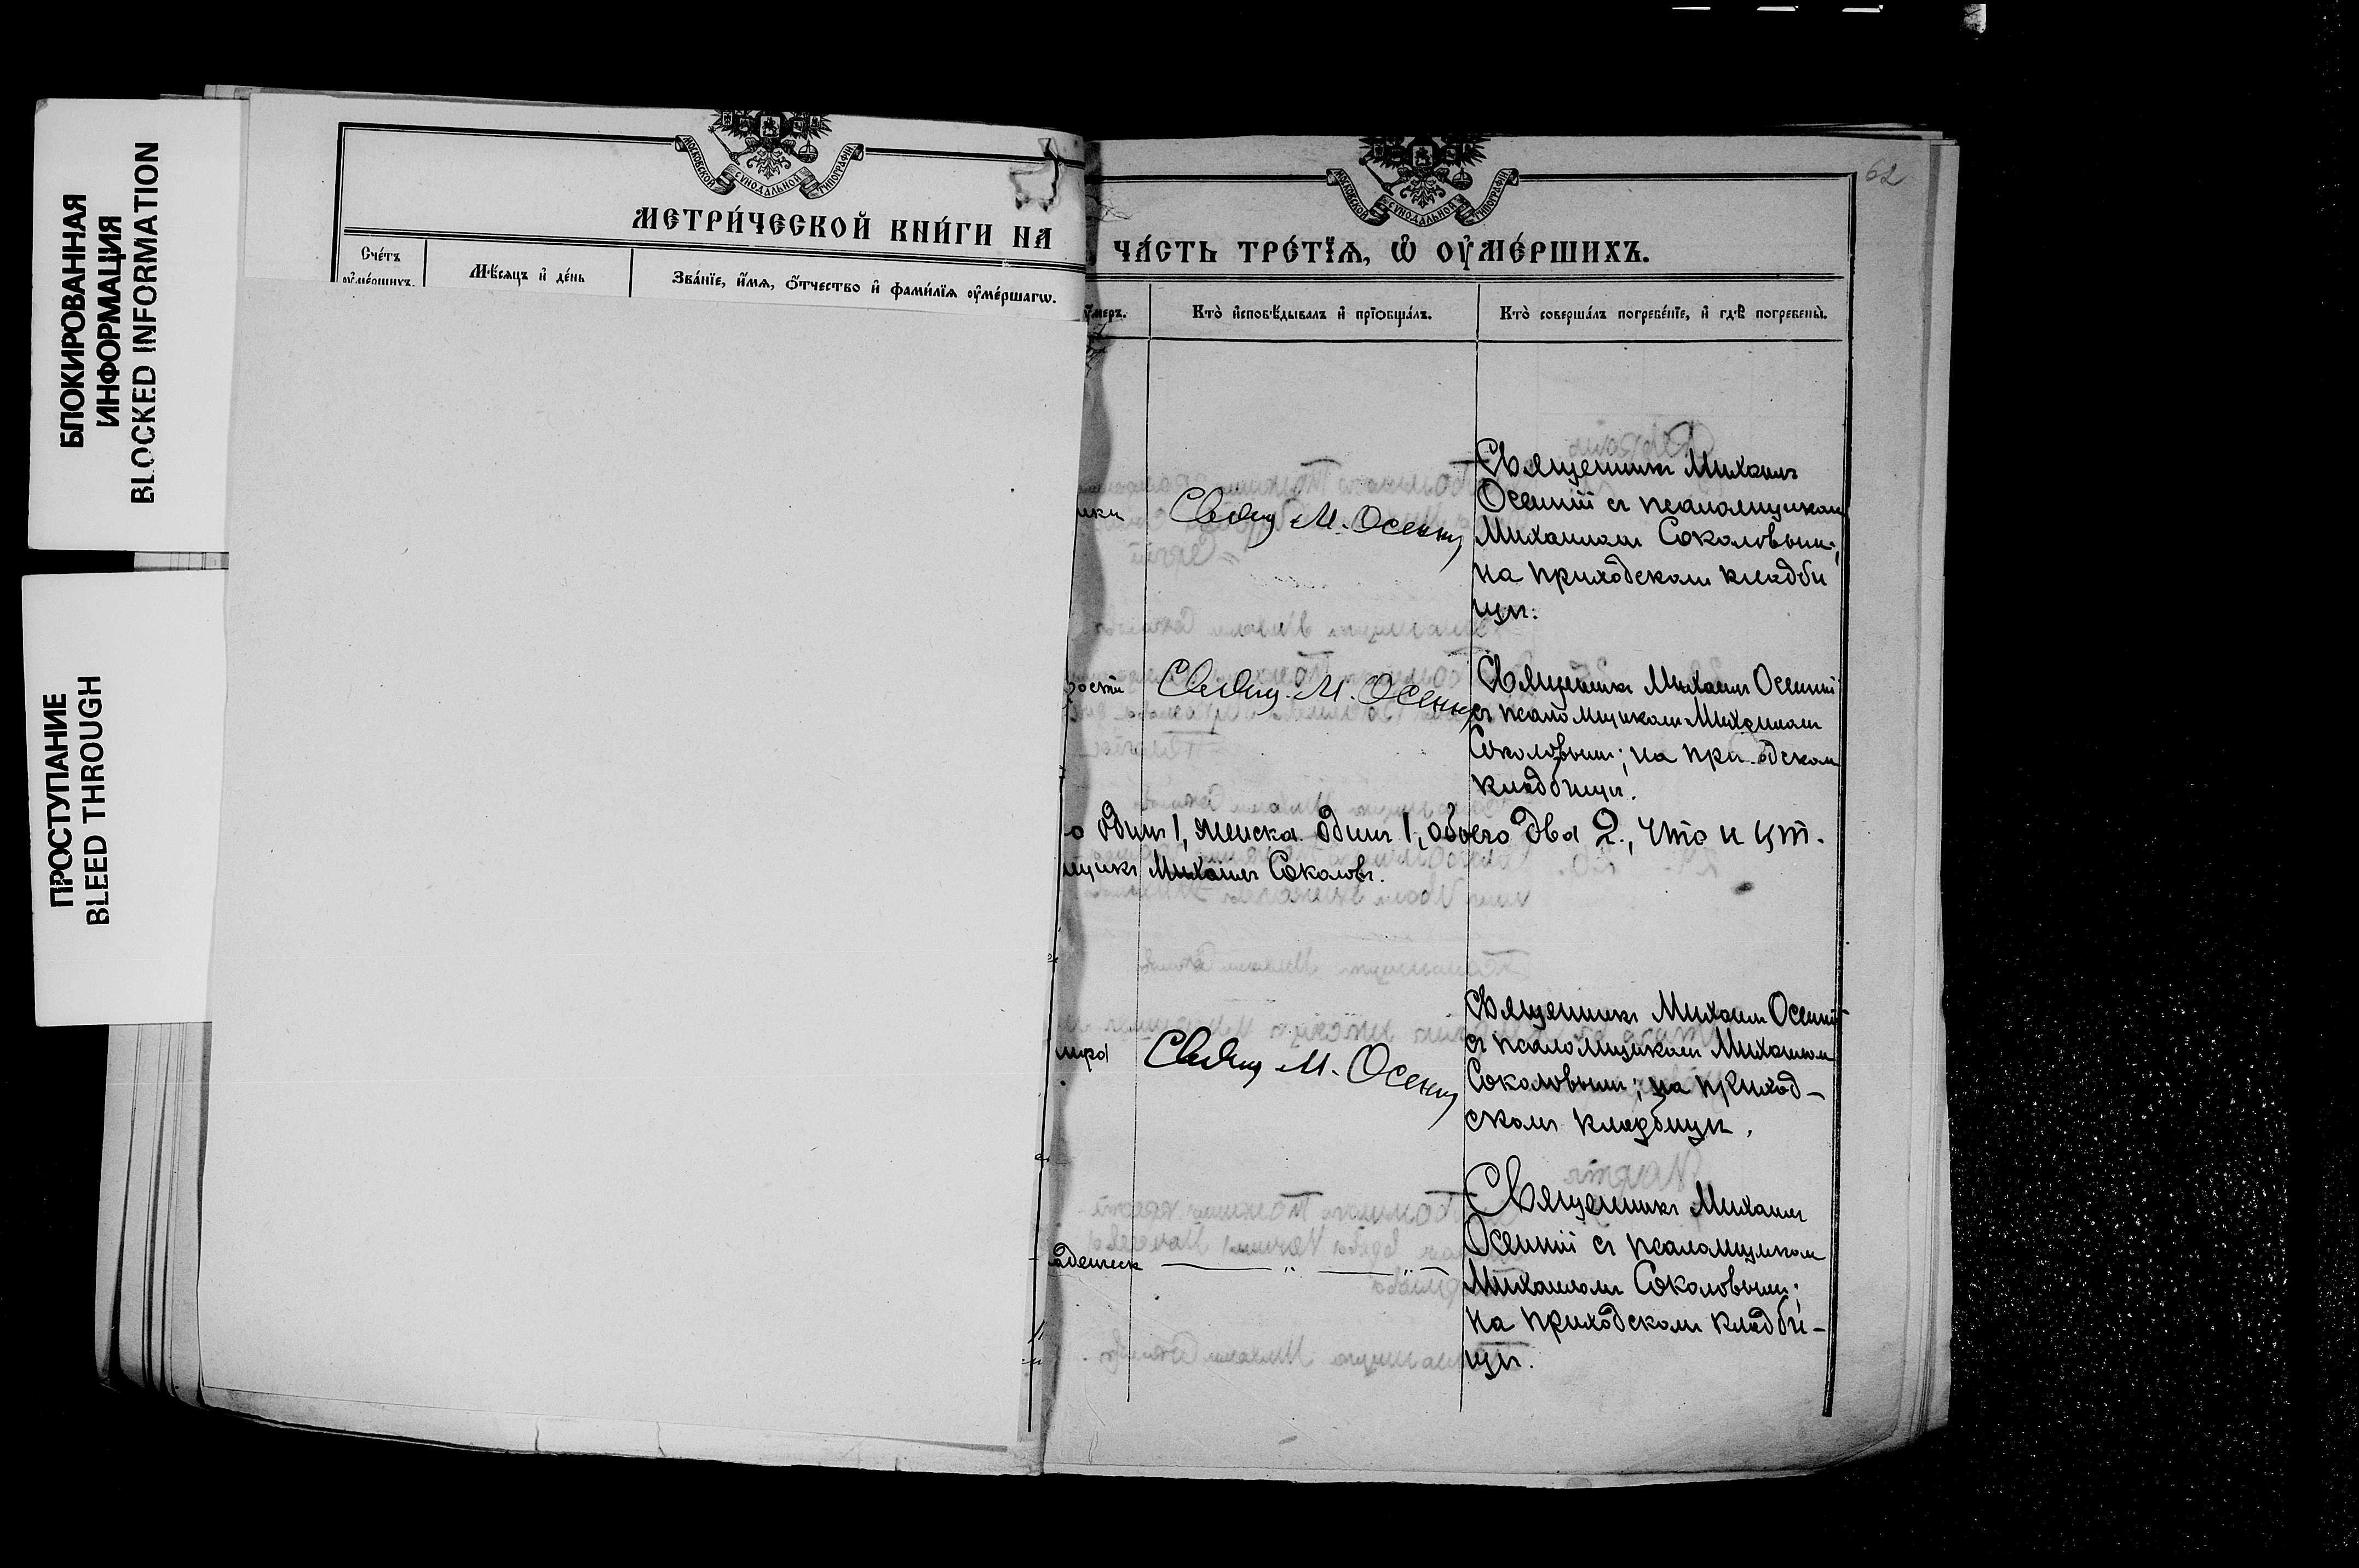 БЛОКИРОВАННАЯ
ИНФОРМАЦИЯ
BLOCKED INFORMATION
ПРОСТУПАНИЕ
BLEED THROUGH
МОСКОВСКОЙ СѴНОДАЛЬНОЙ ТИПОГРАФІИ
МЕТРИ́ЧЕСКОЙ КНИ́ГИ НА
Сче́тъ оу҆ме́ршихъ.
Мѣ́сяцъ и҆ де́нь
Зва́нїе, и҆́мѧ, ѻ҆́тчество и҆ фами́лїѧ оу҆ме́ршагѡ.
МОСКОВСКОЙ СѴНОДАЛЬНОЙ ТИПОГРАФІИ
62
ЧА́СТЬ ТРЕ́ТЇѦ, Ѽ ОУ҆МЕ́РШИХЪ.
у́меръ.
Кто̀ и҆сповѣ́дывалъ и҆ прїѻбща́лъ.
Кто̀ соверша́лъ погребе́нїе, и҆ гдѣ̀ погребены̀.
Священникъ Михаилъ
Осенній съ псаломщикомъ
Михаиломъ Соколовымъ;
на приходскомъ кладби
щѣ.
Свящ. М. Осенни
рости
Свящ. М. Осенни
Священникъ Михаилъ Осенній
съ псаломщикомъ Михаиломъ
Соколовымъ; на при одском
кладбищѣ.
о одинъ 1, женска одинъ 1, обоего два 2., что и ут.
щикъ Михаилъ Соколовъ.
Свящ М. Осенни
Священникъ Михаилъ Осенній
съ псаломщикомъ Михаиломъ
Соколовымъ; на приход-
скомъ кладбищѣ.
аденческ
Священникъ Михаилъ
Осенній съ псаломщиком
Михаиломъ Соколовымъ;
на приходскомъ кладби-
щѣ.